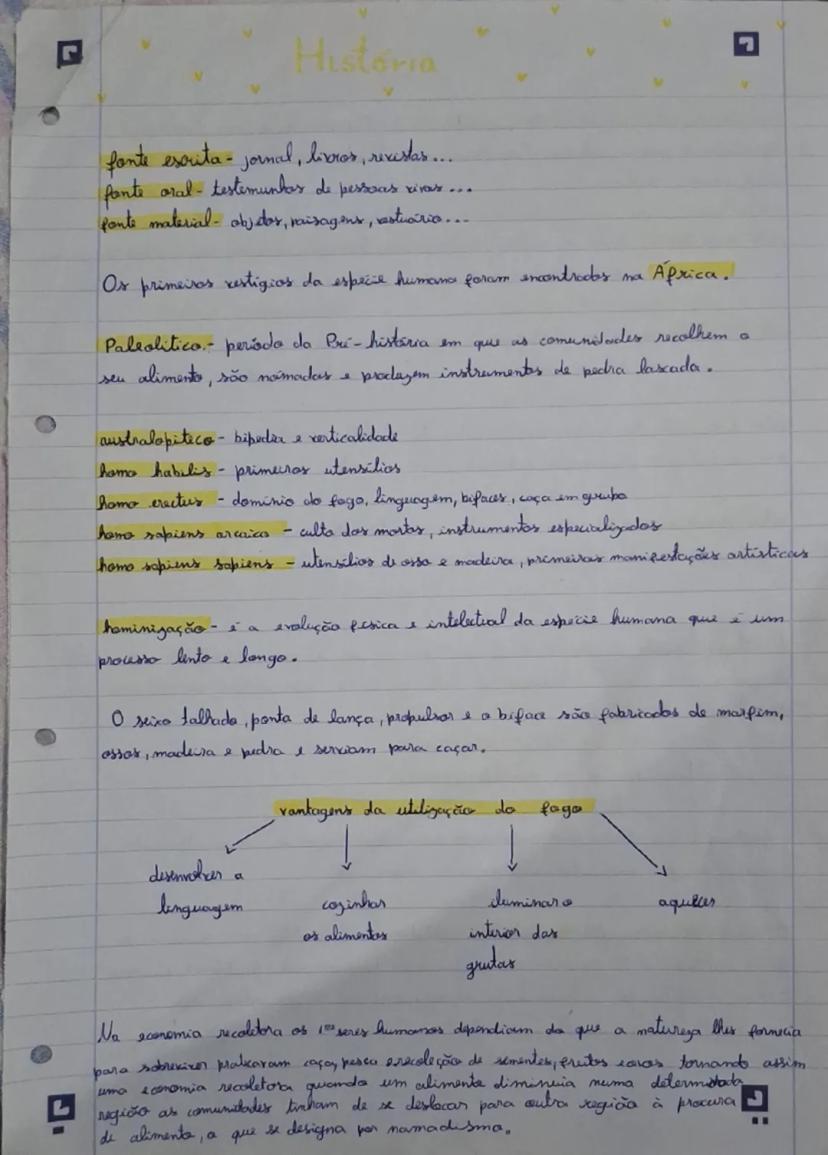 História
fonte escrita - jornal, livros, revistas...
fonte oral - testemunhos de pessoas vivas...
fonte material - objetos, paisagens, vestuário...
Os primeiros vestígios da espécie humana foram encontrados na África.
Paleolítico - período da Pré-história em que as comunidades recolhem o
seu alimento, são nómadas e produzem instrumentos de pedra lascada.
australopiteco - bipedia e verticalidade
homo habilis - primeiros utensílios
homo erectus - domínio do fogo, linguagem, bifaces, caça em grupo
homo sapiens arcaico - culto dos mortos, instrumentos especializados
homo sapiens sapiens - utensílios de osso e madeira, primeiras manifestações artísticas
hominização - é a evolução física e intelectual da espécie humana que é um
processo lento e longo.
O seixo talhado, ponta de lança, propulsor e o biface são fabricados de marfim,
ossos, madeira e pedra e serviam para caçar.
vantagens da utilização do fogo
desenvolver a
linguagem
cozinhar
os alimentos
iluminar o
interior das
grutas
aquecer
Na economia recoletora os 1ºs seres humanos dependiam do que a natureza lhes fornecia
para sobreviver praticavam caça, pesca e recoleção de sementes, frutos e ovos tornando assim
uma economia recoletora quando um alimento diminuia numa determinada
região as comunidades tinham de se deslocar para outra região à procura
de alimento, a que se designa por nomadismo.